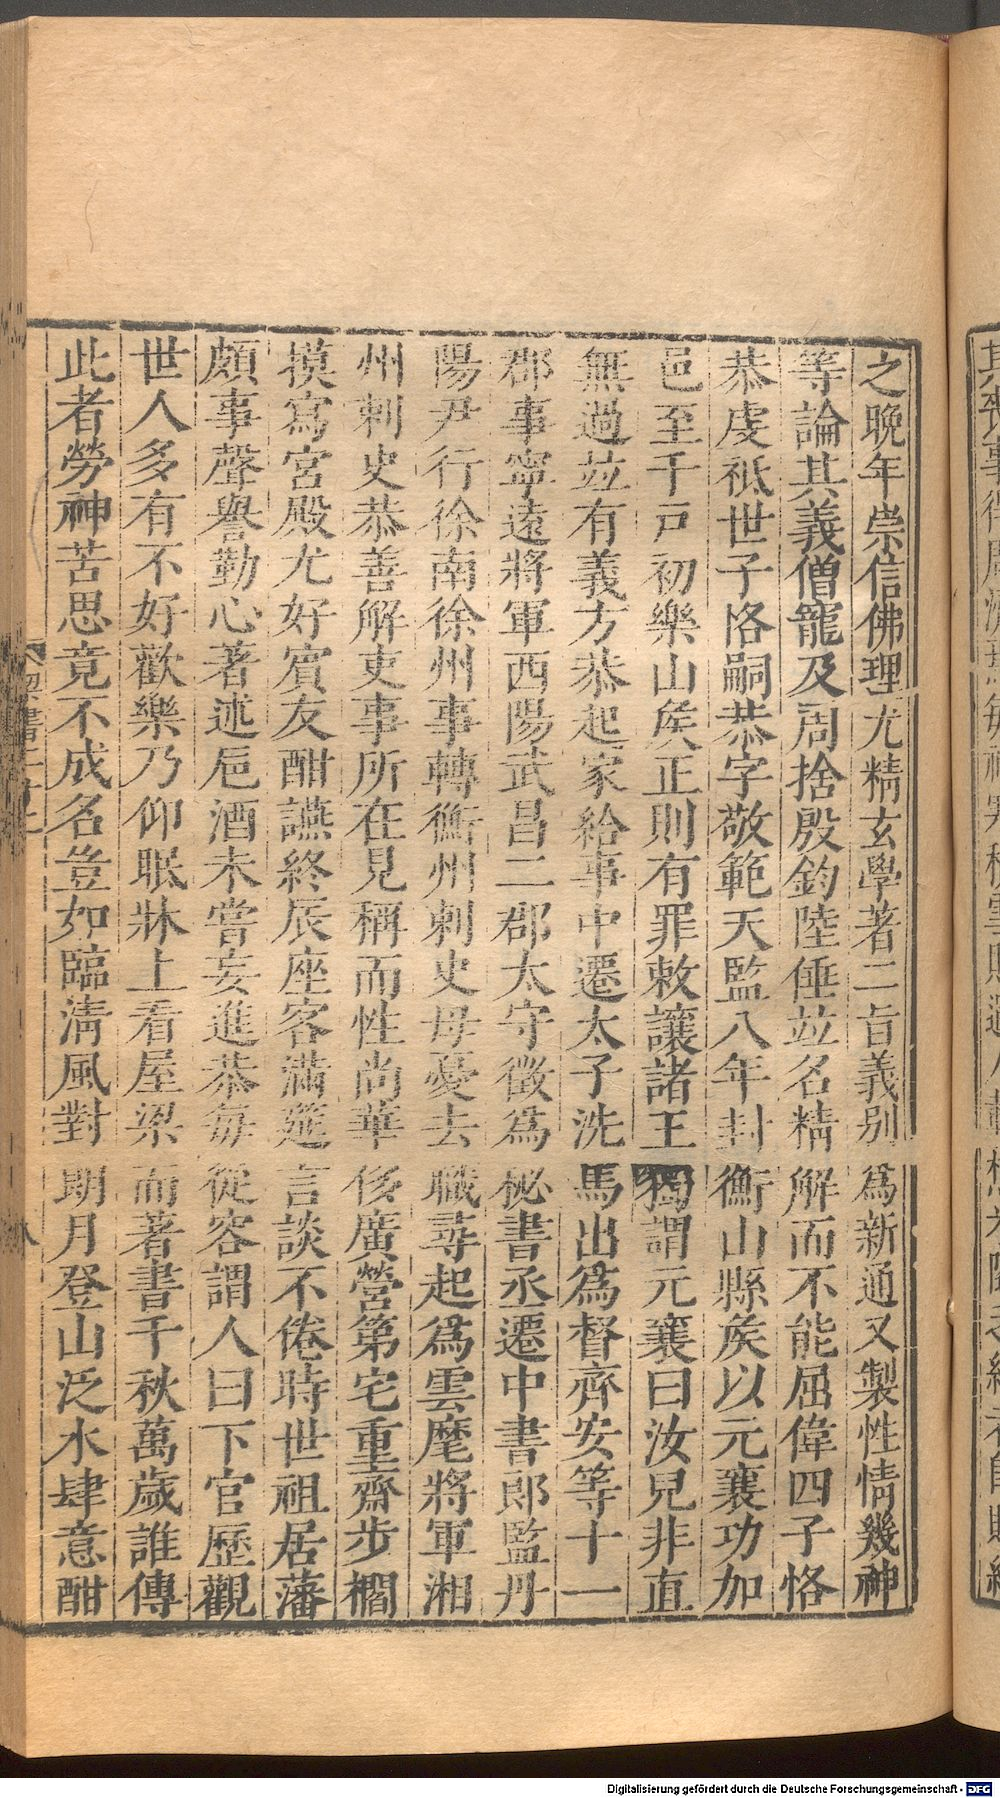 之晚年崇信佛理尤精玄學著二旨義別爲新通又製性情幾神
等論其義僧寵及周捨殷鈞陸倕竝名精解而不能屈偉四子恪
恭虔祗世子恪嗣恭字敬範天監八年封衡山縣矦以元襄功加
邑至千戸初樂山矦正則有罪敕讓諸王獨謂元襄曰汝兒非直
無過竝有義方恭起家給事中遷太子洗馬出爲督齊安等十一
郡事寧遠將軍西陽武昌二郡太守徵爲祕書丞遷中書郎監丹
陽尹行徐南徐州事轉衡州刺史母憂去職尋起爲雲麾將軍湘
州刺史恭善解吏事所在見稱而性尚華侈廣營第宅重齋步櫚
摸寫宮殿尤好賓友酣讌終辰座客滿筵言談不倦時世祖居藩
頗事聲譽勤心著述巵酒未嘗妄進恭每從容謂人曰下官歷觀
世人多有不好歡樂乃仰眠牀上看屋梁而著書千秋萬歲誰傳
此者勞神苦思竟不成名豈如臨淸風對朗月登山泛水肆意酣
Digitalisierung gefördert durch die Deutsche Forschungsgemeinschaft - DFG